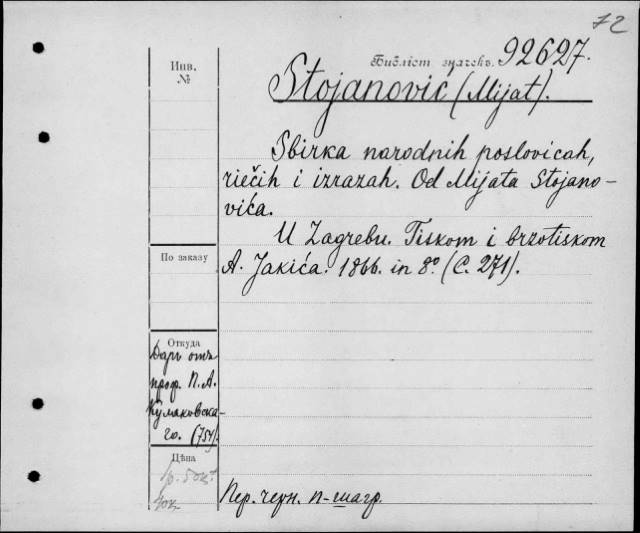 72
Библіот. значекъ. 92627.
Инв.
№
Stojanović (Mijat).
Sbirka narodnih poslovicah,
riečih i izrazah. Od Mijata Stojano-
vića.
U Zagrebu. Tiskom i brzotiskom
A. Jakića. 1866. in 8º (C. 271).
По заказу
Откуда
Даръ отъ
проф. П. А.
Кулаковска-
го. (757).
Цѣна
Пер. черн. п-шагр.